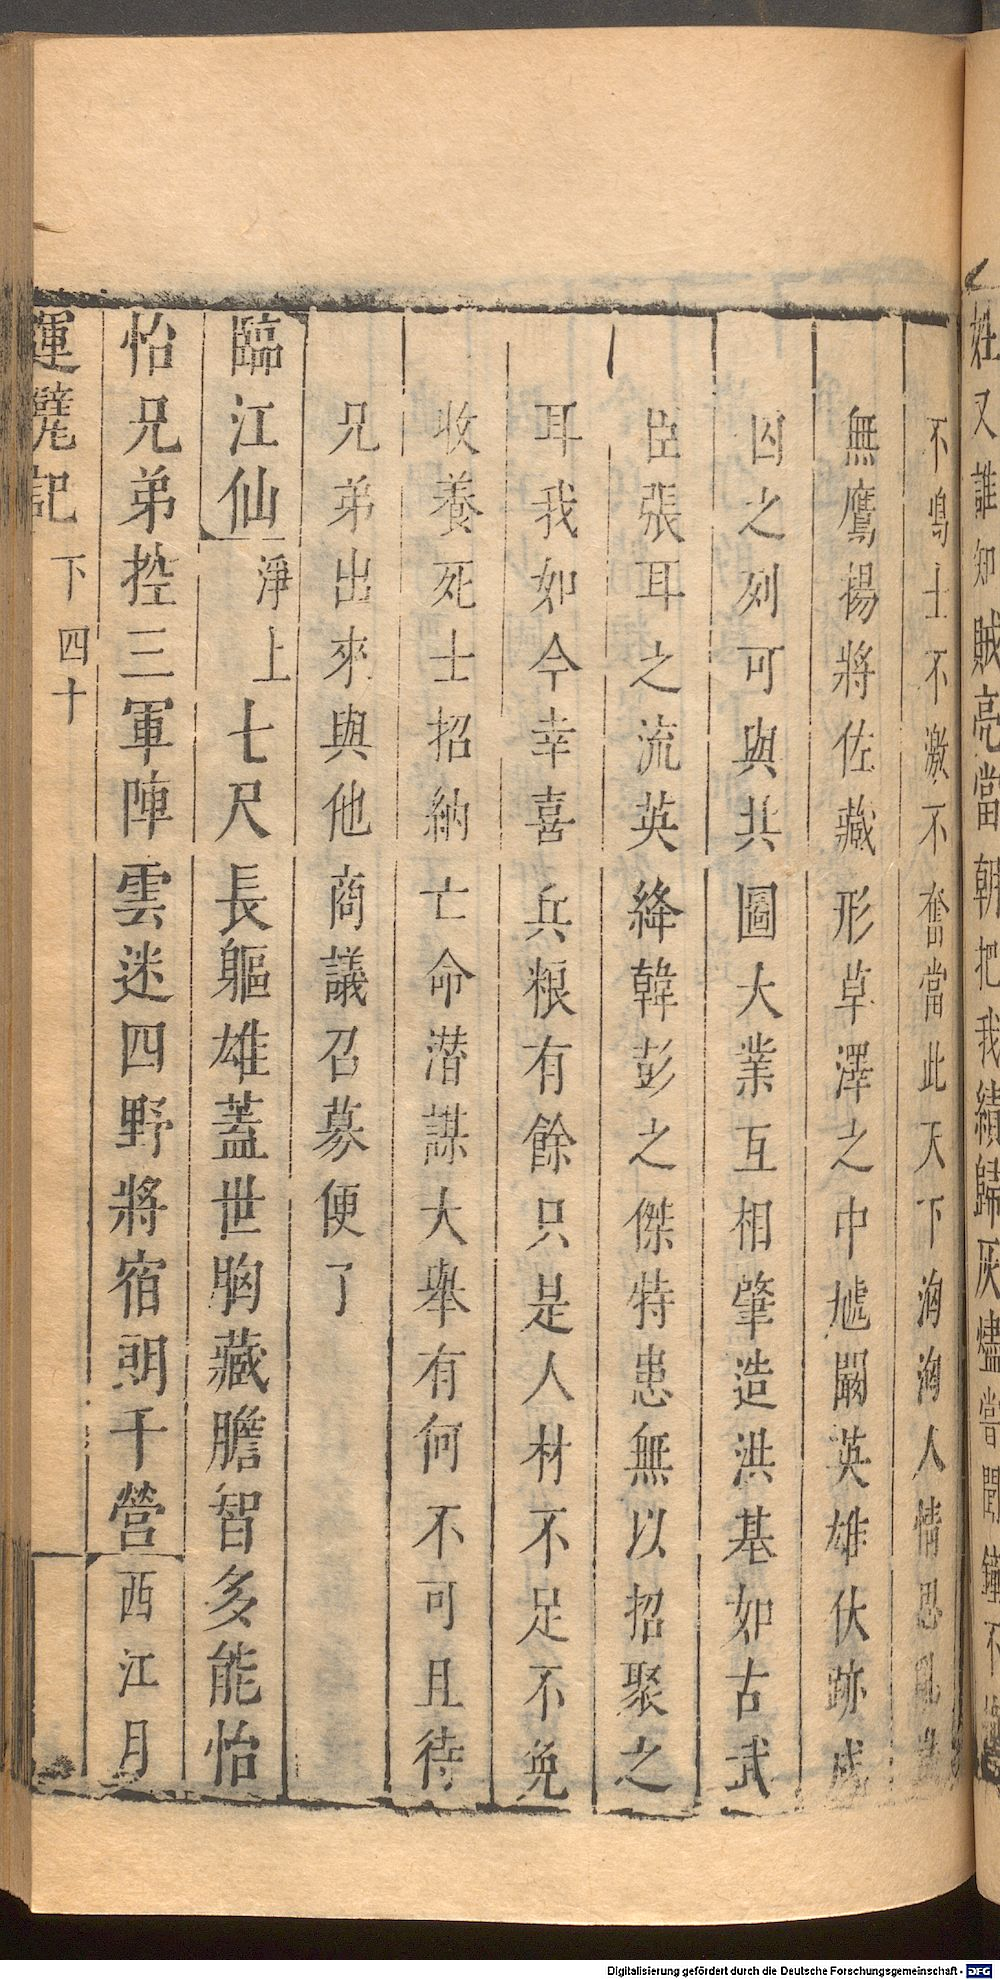 姓又誰知賊亮當朝把我績歸灰燼當聞鐘不
不鳴士不激不奮當此天下洶洶人情思亂
無鷹揚將佐藏形草澤之中虓闞英雄伏跡
囚之列可與共圖大業互相肇造洪基如古武
臣張耳之流英絳韓彭之傑特患無以招聚之
耳我如今幸喜兵粮有餘只是人材不足不免
收養死士招納亡命潜謀大舉有何不可且待
兄弟出來與他商議召募便了
臨江仙淨上七尺長軀雄蓋世胸藏膽智多能怡
怡兄弟控三軍陣雲迷四野將宿朗千營西江月
運甓記 下 四十
Digitalisierung gefördert durch die Deutsche Forschungsgemeinschaft - DFG